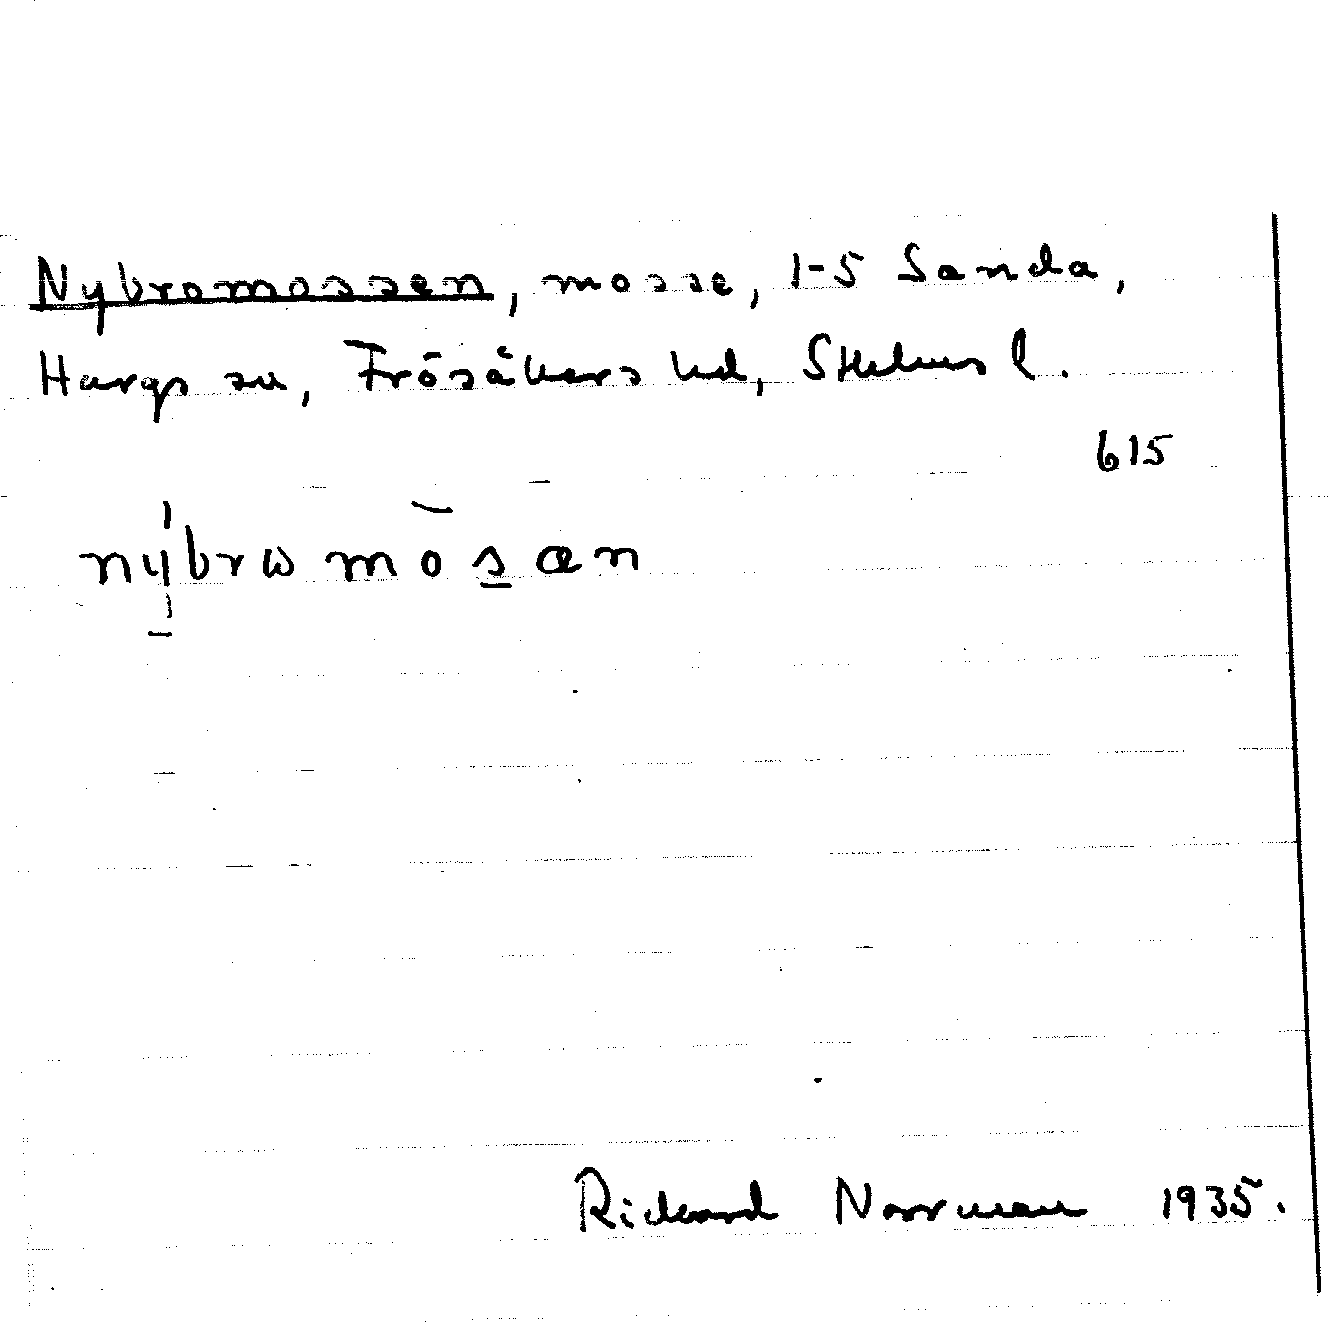 Nybromossen, mosse, 1-5 Sanda,
Hargs sn, Frösåkers hd, Sthlms l.
615
nybrωmosæn
Rickard Norrman 1935.